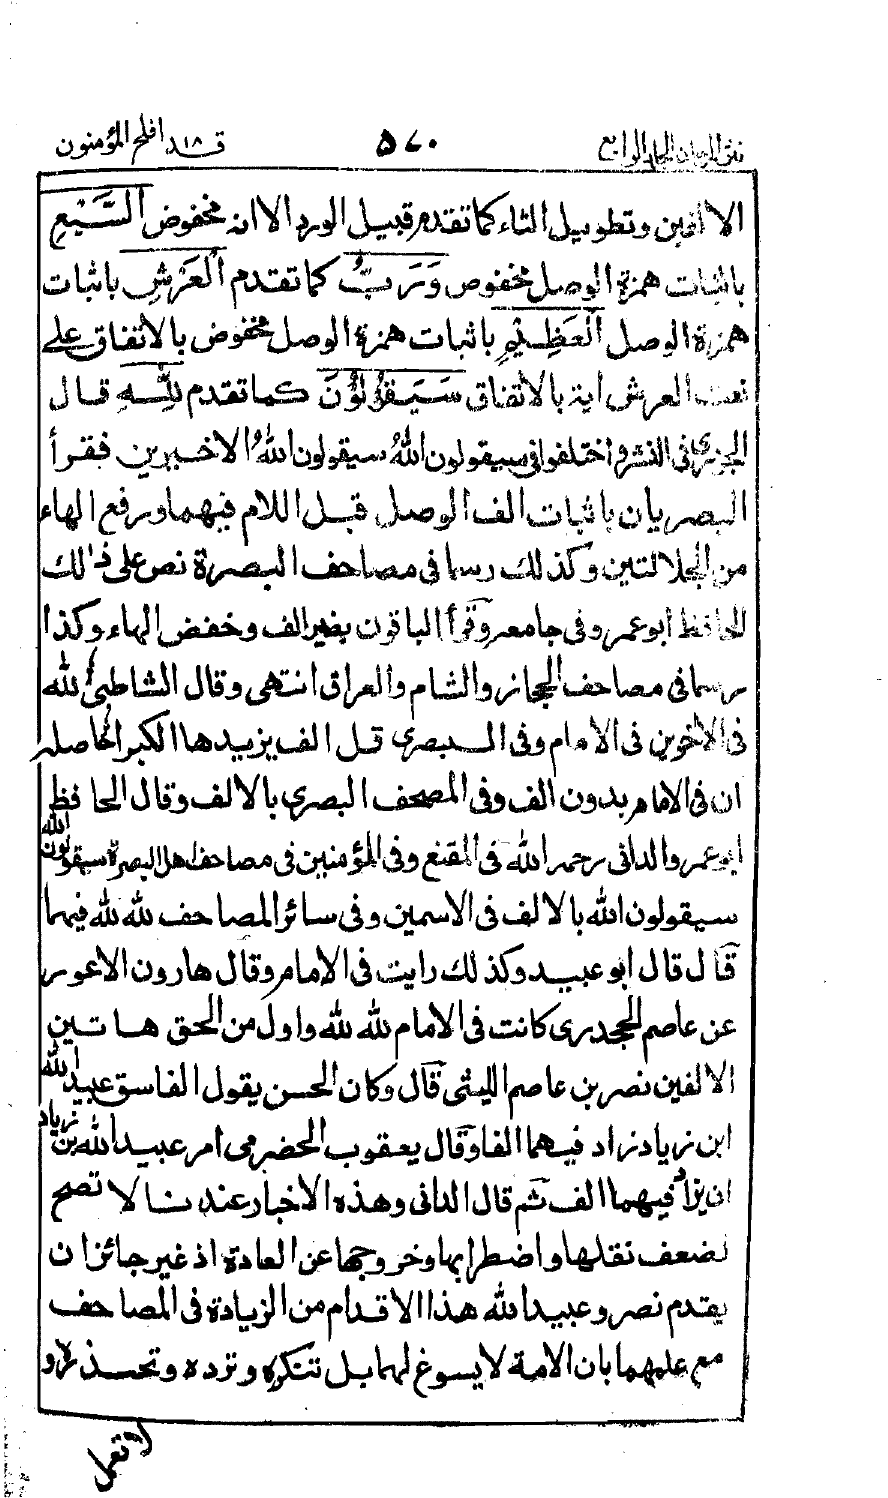 نثر المرجان الجلد الرابع
٥٧٠
قد ١٨ افلح المؤمنون
الالفين وتطويل الثاء كما تقدم قبيل الورد الا انه مخفوض السَّبْعِ
باثبات همزة الوصل مخفوض وَرَبُّ كما تقدم الْعَرْشِ باثبات
همزة الوصل الْعَظِيْمِ باثبات همزة الوصل مخفوض بالاتفاق على
نعت العرش اية بالاتفاق سَيَقُوْلُوْنَ كما تقدم لِلّٰهِ قال
الجزري فى النشر واختلفوا فى سيقولون اللهُ سيقولون اللهُ الاخيرين فقرأ
البصريان باثبات الف الوصل قبل اللام فيهما ورفع الهاء
من الجلالتين وكذلك رسما فى مصاحف البصرة نص على ذالك
الحافظ أبو عمرو فى جامعه وقرأ الباقون بغير الف وخفض الهاء وكذا
رسما فى مصاحف الحجاز والشام والعراق انتهى وقال الشاطبى لله
فى الاخرين فى الامام وفى البصرى قل الف يزيدها الكبرا الحاصله
ان فى الامام بدون الف وفى المصحف البصرى بالالف وقال الحافظ
ابو عمرو الدانى رحمه الله فى المقنع وفى المؤمنين فى مصاحف اهل البصرة سيقولون الله
سيقولون الله بالالف فى الاسمين وفى سائر المصاحف لله لله فيهما
قال قال ابو عبيد وكذلك رايت فى الامام وقال هارون الاعور
عن عاصم الجحدرى كانت فى الامام لله لله واول من الحق هاتين
الالفين نصر بن عاصم الليثى قال وكان الحسن يقول الفاسق عبيد الله
ابن زياد زاد فيهما الفا وقال يعقوب الحضرمى امر عبيد الله بن زياد
ان يزاد فيهما الف ثم قال الدانى وهذه الاخبار عندنا لا تصح
لضعف نقلها واضطرابها وخروجها عن العادة اذ غير جائز ان
يقدم نصر وعبيد الله هذا الاقدام من الزيادة فى المصاحف
مع علمهما بان الامة لا يسوغ لهما بل تنكره وترده وتحذره و
لا تعمل